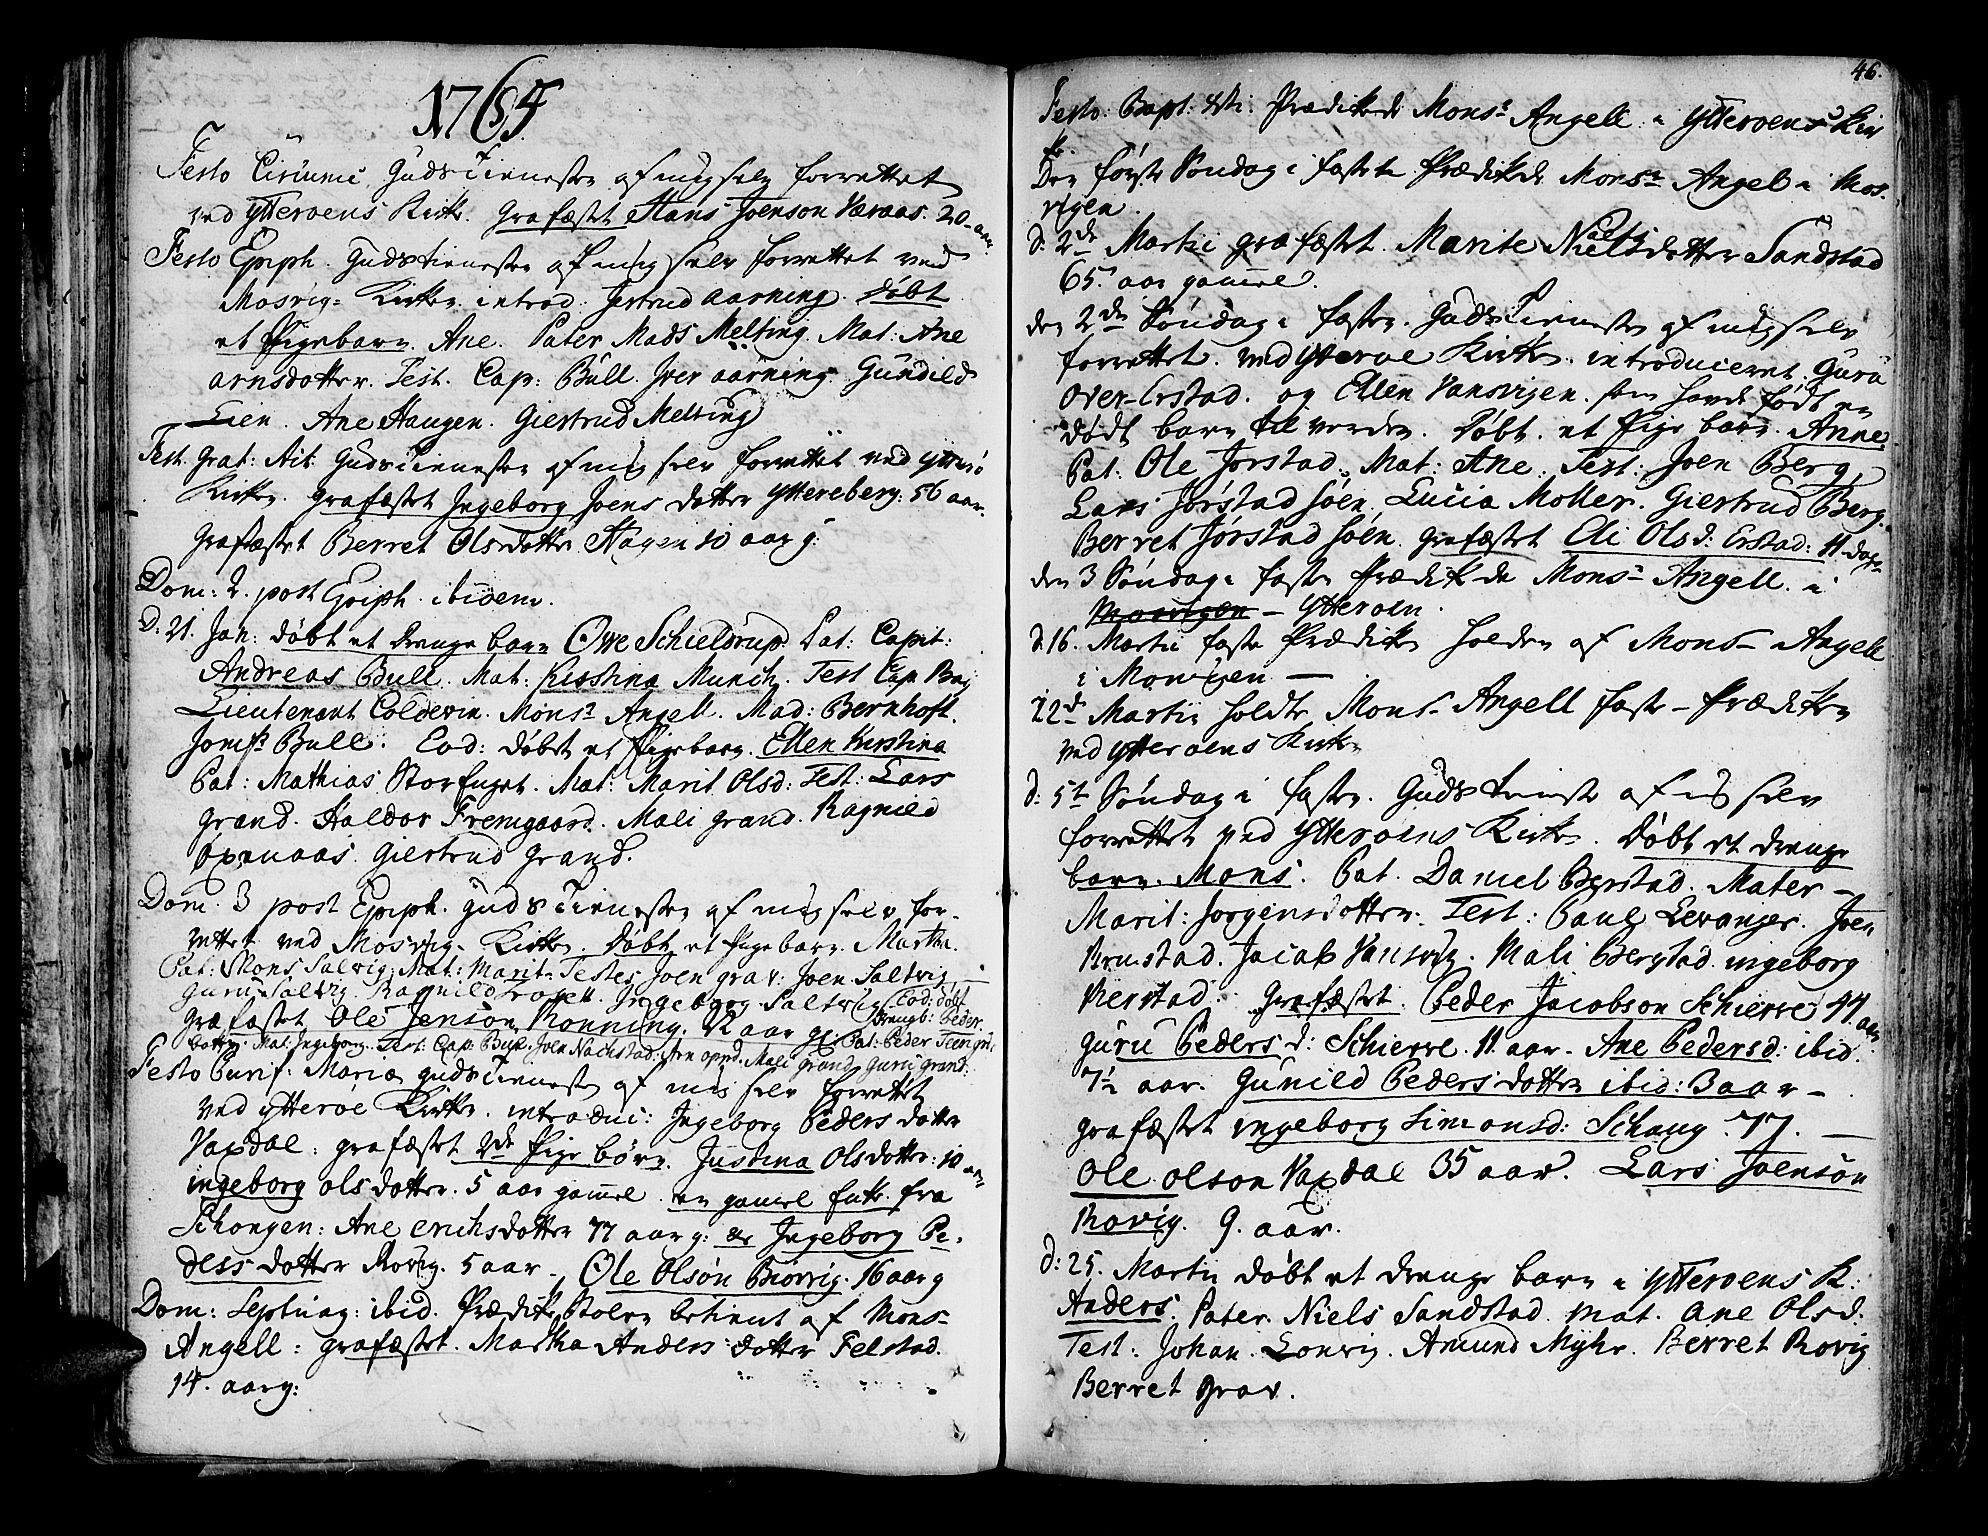 1765
Festo Circumc: Guds Tienesten af mig selv forrettet
ved Ytterøens Kirke. Grafæstet Hans Joenson Væraas. 20 aar
Festo Epiph. Guds Tienesten af mig selv forrettet ved
Mosvig= Kirken. introd: Jertrud Aarning. Døbt
et Pigebarn. Ane. Pater Mads Melting. Mat: Ane
arnsdotter. Test. Cap: Bull. Jver aarning. Gunild
Lien. Ane Haugen. Giertrud Melting
Fest. Guds Tienesten af mig selv forrettet ved Ytterø
Kirken. grafæstet Jngeborg Joens dotter Yttereberg: 56 aar.
grafæstet Berret Olsdotter Hagen 10 aar g:
Dom: 2. post Epiph. ibidem.
D: 21. Jan: døbt et Drenge barn Owe Schieldrup. Pat: Capit:
Andreas Bull. Mat: Kirstina Munch. Test Cap
Lieutenant Coldevin. Monsr Angell. Mad: Bernhoft.
Jomfr Bull. Eod: døbt et Pigebarn. Ellen Kirstina
Pat: Mathias Storfuget. Mat: Marit Olsd: Test: Lars
Grand. Haldor Fremgaard. Mali grand. Ragnild
Oxenaas. Giertrud Grand.
Dom. 3 post Epiph. Guds Tienesten af mig selv for-
rettet ved Mosvig= Kirken. Døbt et Pigebarn. Martha.
Pat: Mons Saltvig. Mat: Marit. Testes Joen grav: Joen Saltvig
Guru Saltvig. Ragnild. Jngeborg Saltvig Eod: døbt
Grafæstet Ole Jenson Rønning. 12 aar g: Drengb: Peder
Pat: Peder. Mat: Jngeborg. Test: Cap: Bull. Joen Nachstad. Mali Grand Guru Grand.
Festo Purif: Mariæ Guds Tienesten af mig selv forrettet
ved Ytterøe Kirke. introduc: Jngeborg Peders dotter
Vaxdal: grafæstet 2de Pige børn. Justina Olsdotter: 10 aar
ingeborg ols dotter. 5 aar gamel. en gamel Enke fra
Schongen: Ane erichsdotter 77 aar g: & Jngeborg Pe-
ders dotter Rovig. 5 aar. Ole Olsøn Biørvig. 16 aar g
Dom: Septuag: ibid. Prædike Stolen betient af Mons-
Angell: grafæstet. Martha Anders dotter Felstad.
14. aar g:
46.
Festo: Prædikede Monsr Angell i Ytterøens Kir
ke.
Den første Søndag i faste Prædikede Monsr Angel i Mos-
vigen.
d: 2de Martii grafæstet. Marite Nielsdotter Sandstad
65. aar gamel.
den 2den Søndag i fasten. Guds Tienesten af mig selv
forrettet ved Ytterøe Kirke. introduceret Guru
Over-Erstad. og Ellen Vansvigen. som havde født en
dødt barn til verden. Døbt et Pige barn. Anne
Pat. Ole Jørstad. Mat: Ane. Test: Joen Berg
Lars Jørstad søen. Lucia Moller. Giertrud Berg.
Berret Jørstad søen. grafæstet Eli Olsd: Erstad: 11 dage
den 3 Søndag i fasten Prædikede Monsr Angell. i
Mosvigen - Ytterøen.
d. 16. Martii faste Prædiken holden af Mons- Angell
i Mosvigen —
22de Martii holdte Mons- Angell faste-Prædiken
ved Ytterøens Kirke
d: 5te Søndag i fasten. Guds tieneste af mig selv
forrettet ved Ytterøens Kirke. Døbt et drenge
barn. Mons. Pat. Daniel Berstad. Mater-
Marit: Jørgensdotter. Test: Paul Levanger. Joen
Nerstad. Jacob Vansvig. Mali Bergstad. ingeborg
Nerstad. Grafæstet. Peder Jacobson Schierre 44. aar
Guru Peders d: Schierre. 11 aar. Ane Pedersd: ibid.
7½ aar. Gunild Peders dotter ibid: 3 aar -
grafæstet ingeborg simonsd: Schaug. 77. —
Ole olson Vaxdal 35 aar. Lars Joensøn
Rovig. 9. aar.
d: 25. Martii døbt et drenge barn i Ytterøens K:
Anders. Pater. Niels Sandstad. mat. ane Olsd:
Test: Johan. Lonvig. Amund Myhr. Berret Rovig
Berret grav.